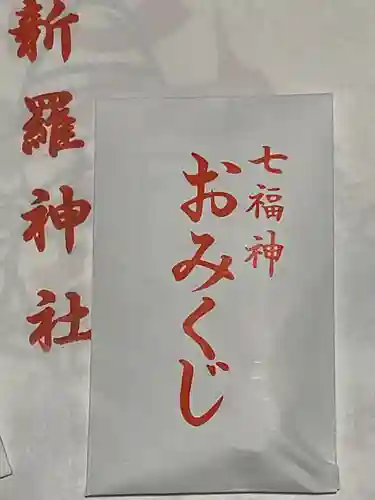 七福神
おみくじ
新羅神社